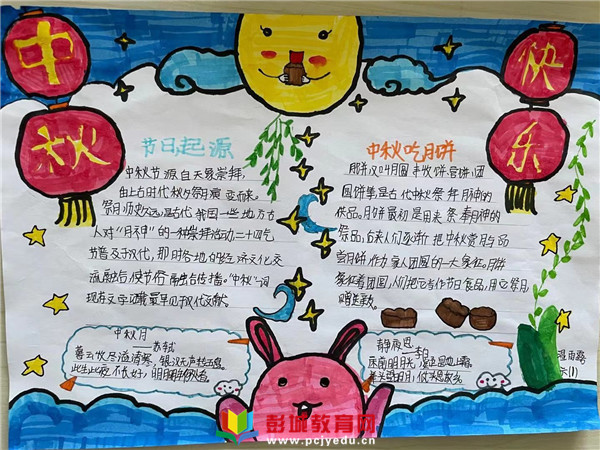 中
秋
快
乐
节日起源
中秋节源自天象崇拜,
由上古时代秋夕祭月演变而来。
祭月,历史久远,是古代我国一些地方古
人对“月神”的一种崇拜活动,二十四节气
普及于汉代,那时各地的经济文化交
流融合使节俗融合传播。“中秋”一词
现存文字记载最早见于汉代文献。
中秋月
苏轼
暮云收尽溢清寒,银汉无声转玉盘
此生此夜不长好,明月明年何处看
中秋吃月饼
月饼,又叫月团、丰收饼、宫饼、团
圆饼等,是古代中秋祭拜月神的
供品。月饼最初是用来祭奉月神的
祭品,后来人们逐渐把中秋赏月与品
尝月饼,作为家人团圆的一大象征。月饼
象征着团圆,人们把它当作节日食品,用它祭月、
赠亲友。
静夜思
李白
床前明月光,疑是地上霜。
举头望明月,低头思故乡
(1)
彭城教育网
www.pcjyedu.cn